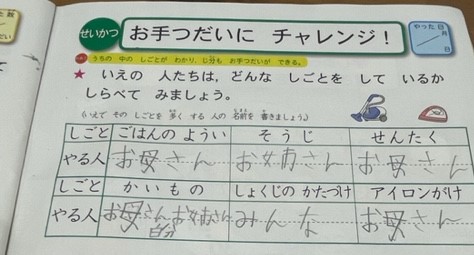 せいかつ お手つだいに チャレンジ！
やった日 月 日
うちの 中の しごとが わかり、じ分も お手つだいが できる。
★ いえの 人たちは，どんな しごとを して いるか
しらべて みましょう。
(いえで その しごとを 多く する 人の 名前を 書きましょう。)
しごと ごはんの ようい そうじ せんたく
やる人 お母さん お母さん お母さん
しごと かいもの しょくじの かたづけ アイロンがけ
やる人 お母さん お父さん 自分 みんな お母さん